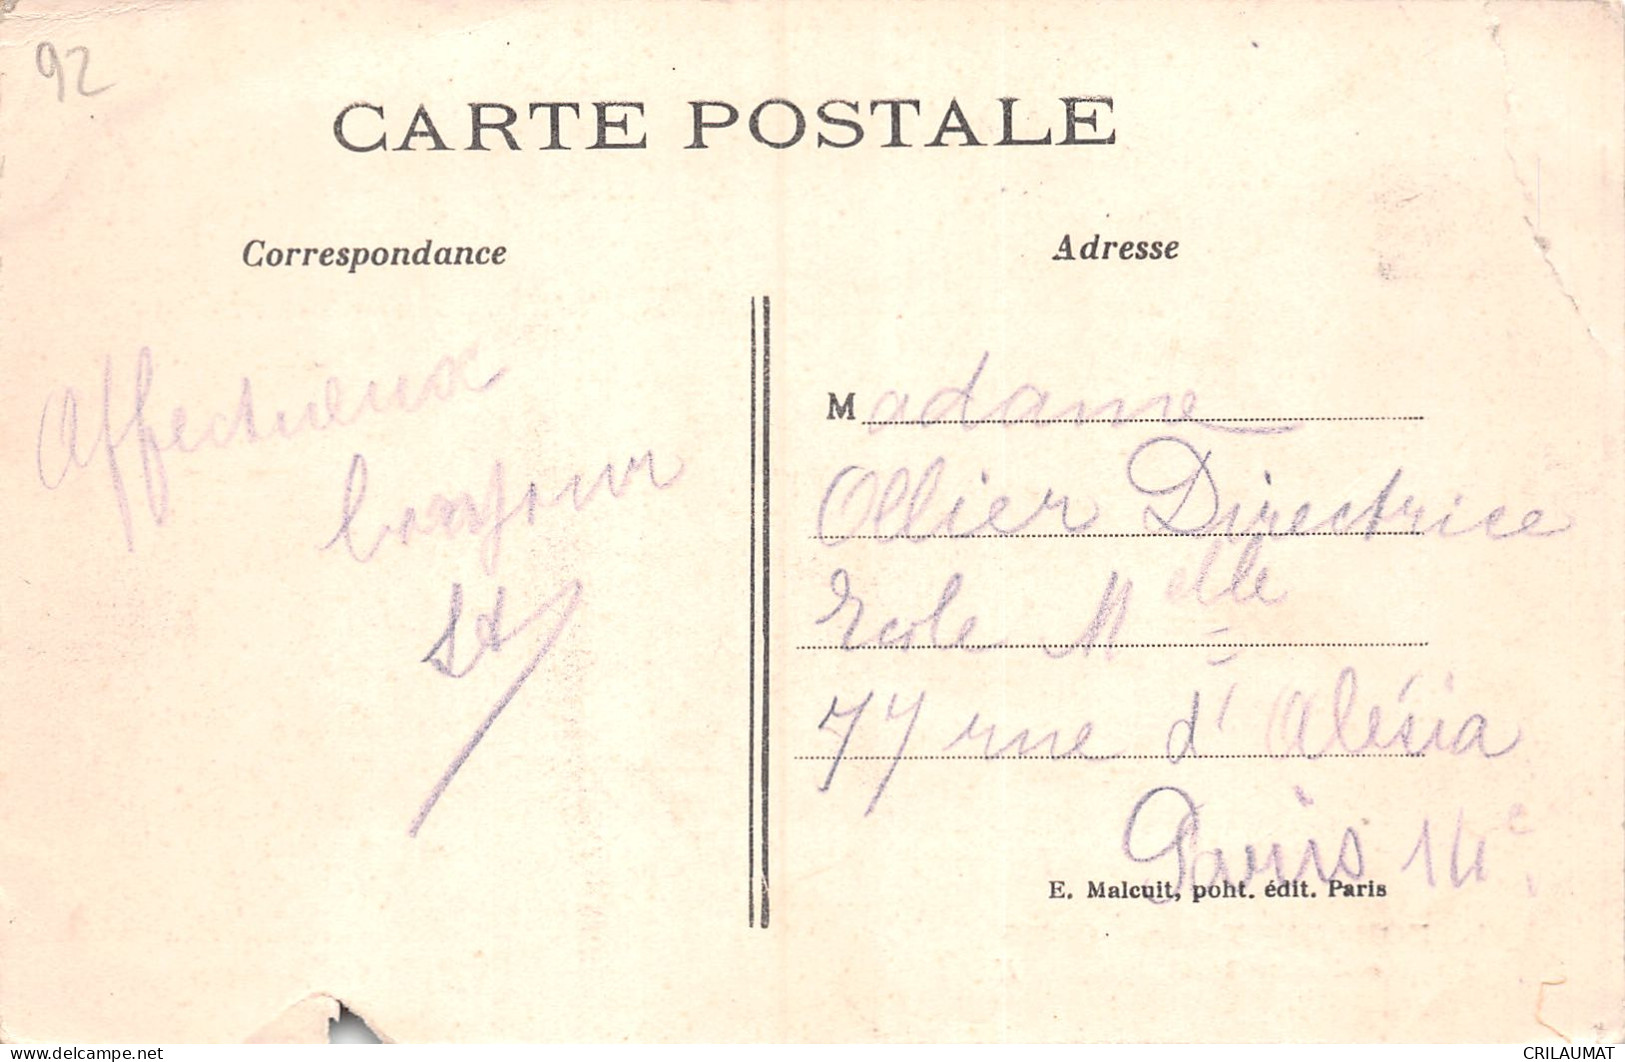 92
CARTE POSTALE
Correspondance
Adresse
Affectueux
bonjour
Madame
Ollier Directrice
Ecole Melle
77 rue d'Alésia
Paris 14e
E. Malcuit, poht. édit. Paris
delcampe.net
CRILAUMAT